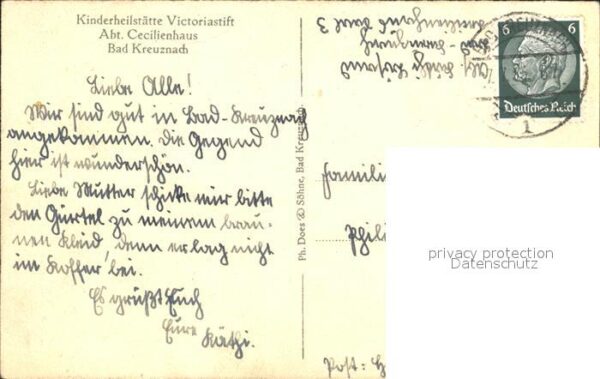 Kinderheilstätte Victoriastift
Abt. Cecilienhaus
Bad Kreuznach
Liebe Alle!
Wir sind gut in Bad-Kreuznach
angekommen. Die Gegend
hier ist wunderschön.
Liebe Mutter schicke mir bitte
den Gürtel zu meinem brau-
nen Kleid, denn er lag nicht
im Koffer bei.
Es grüßt Euch
Eure Käthi.
Ph. Does & Söhne, Bad Kreuznach
Abs.
Bad-Kreuznach
3
6 6
Deutsches Reich
BAD KREUZNACH
1
Famili
Phili
Post: H
privacy protection
Datenschutz